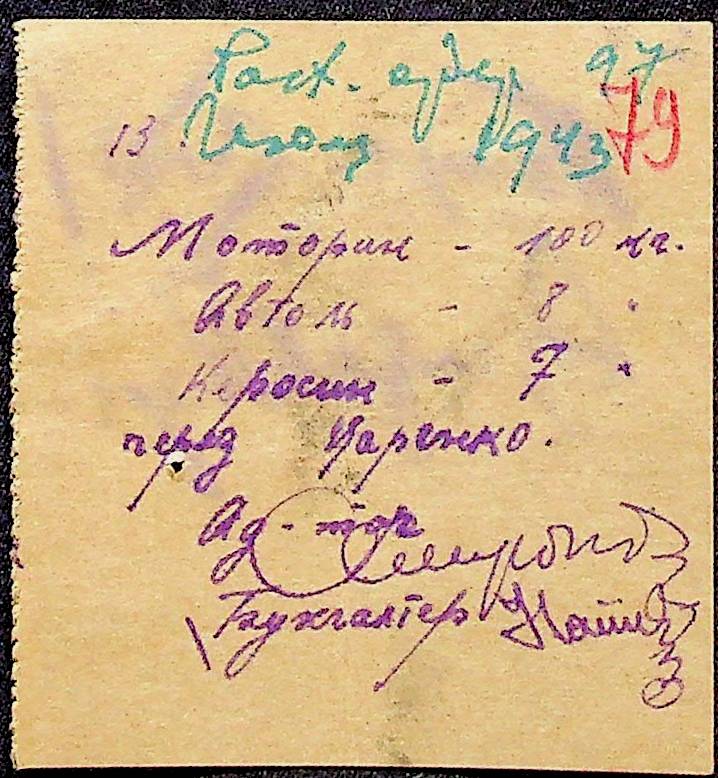 Расх. ордер 97
79
13 Июня 1943
Моторин - 100 кг.
Автоль - 8 "
Керосин - 7 "
через Царенко.
Бухгалтер